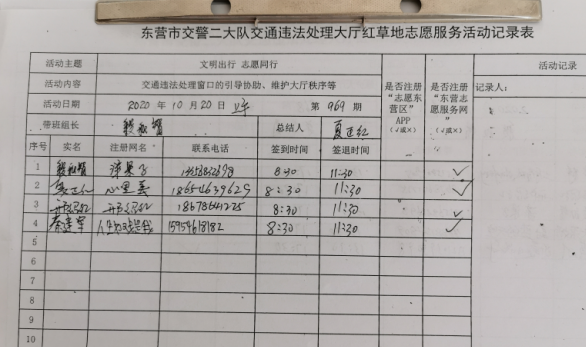 东营市交警二大队交通违法处理大厅红草地志愿服务活动记录表
活动主题 文明出行 志愿同行 活动记录
活动内容 交通违法处理窗口的引导协助、维护大厅秩序等 是否注册“志愿东营区”APP（√或×） 是否注册“东营志愿服务网”（√或×） 记录人：
活动日期 2020 年 10 月 20 日 第 969 期
带班组长 总结人 夏正红
序号 实名 注册网名 联系电话 签到时间 签退时间
1 8:30 11:30 √
2 夏正红 心里美 18654639629 8:30 11:30 √
3 18678641225 8:30 11:30 √
4 15954618182 8:30 11:30 √
5
6
7
8
9
10